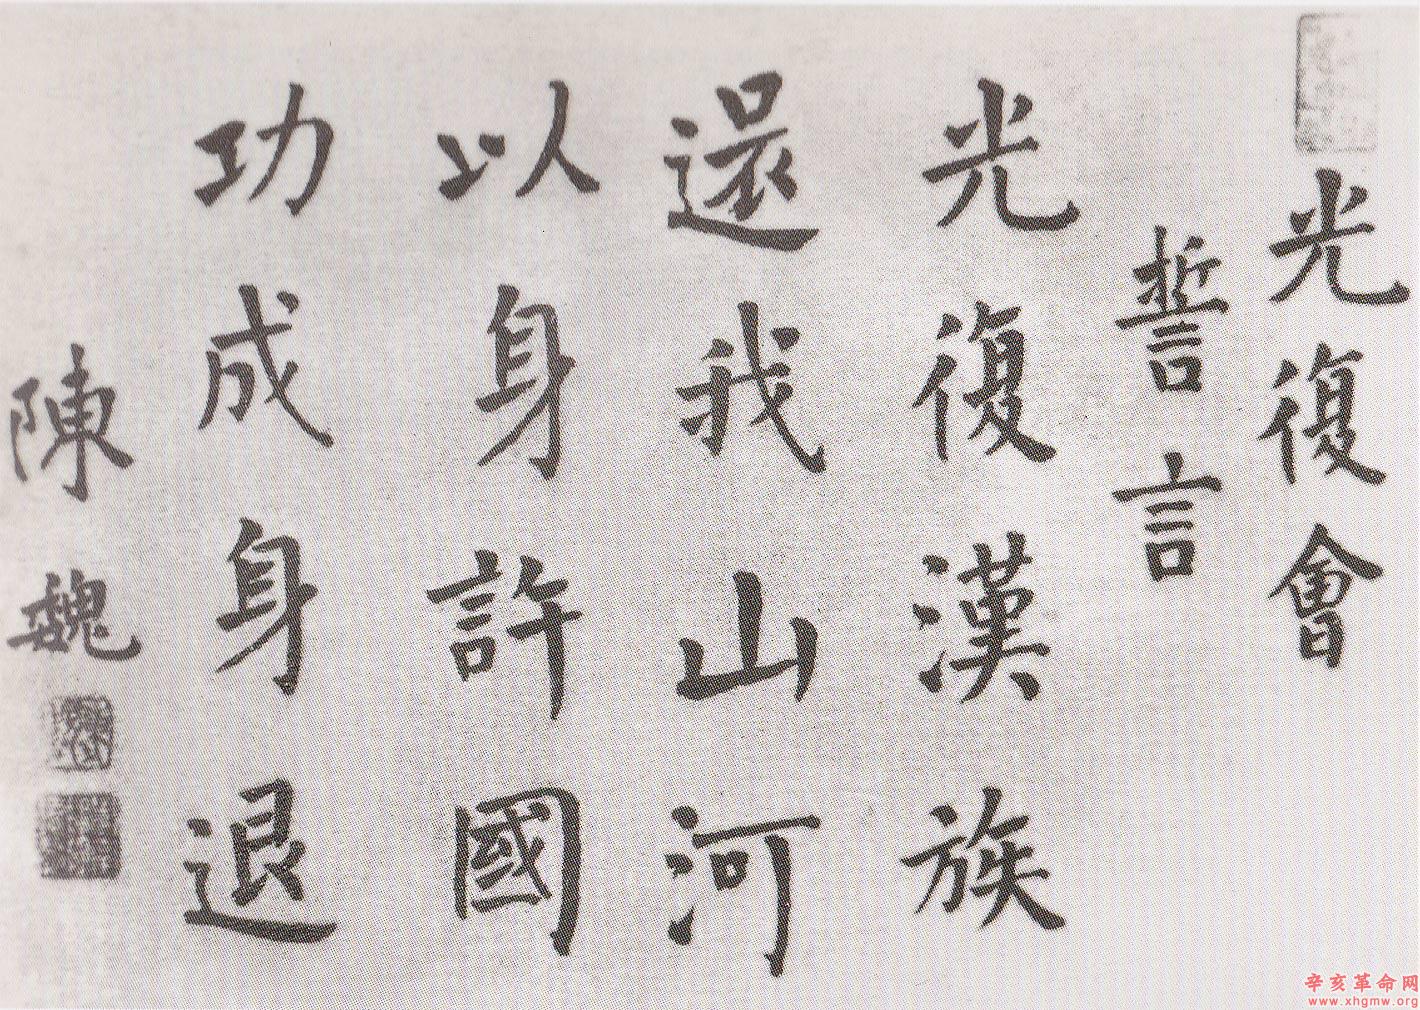 光復會
誓言
光復漢族
還我山河
以身許國
功成身退
陳魏
辛亥革命网
www.xhgmw.org